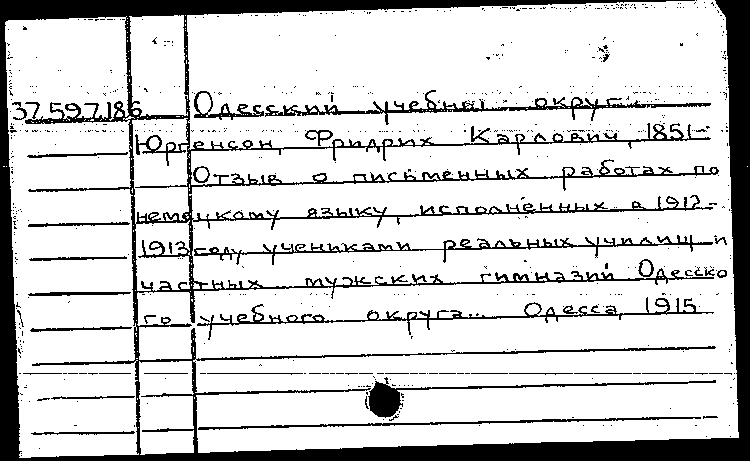 37.597.186 Одесский учебный округ.
Юргенсон, Фридрих Карлович, 1851-
Отзыв о письменных работах по
немецкому языку, исполненных в 1912-
1913 году учениками реальных училищ и
частных мужских гимназий Одесско
го учебного округа... Одесса, 1915